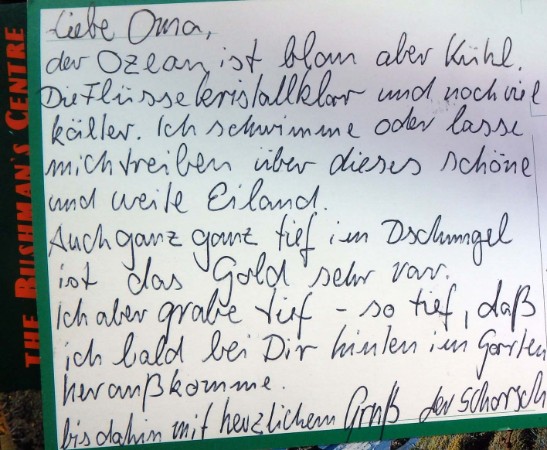 THE BUSHMAN'S CENTRE
Liebe Oma,
der Ozean ist blau aber kühl.
Die Flüsse kristallklar und noch viel
kälter. Ich schwimme oder lasse
mich treiben über dieses schöne
und weite Eiland.
Auch ganz ganz tief im Dschungel
ist das Gold sehr rar.
Ich aber grabe tief - so tief, daß
ich bald bei Dir hinten im Garten
heraußkomme.
bis dahin mit herzlichem Gruß der Schorsch